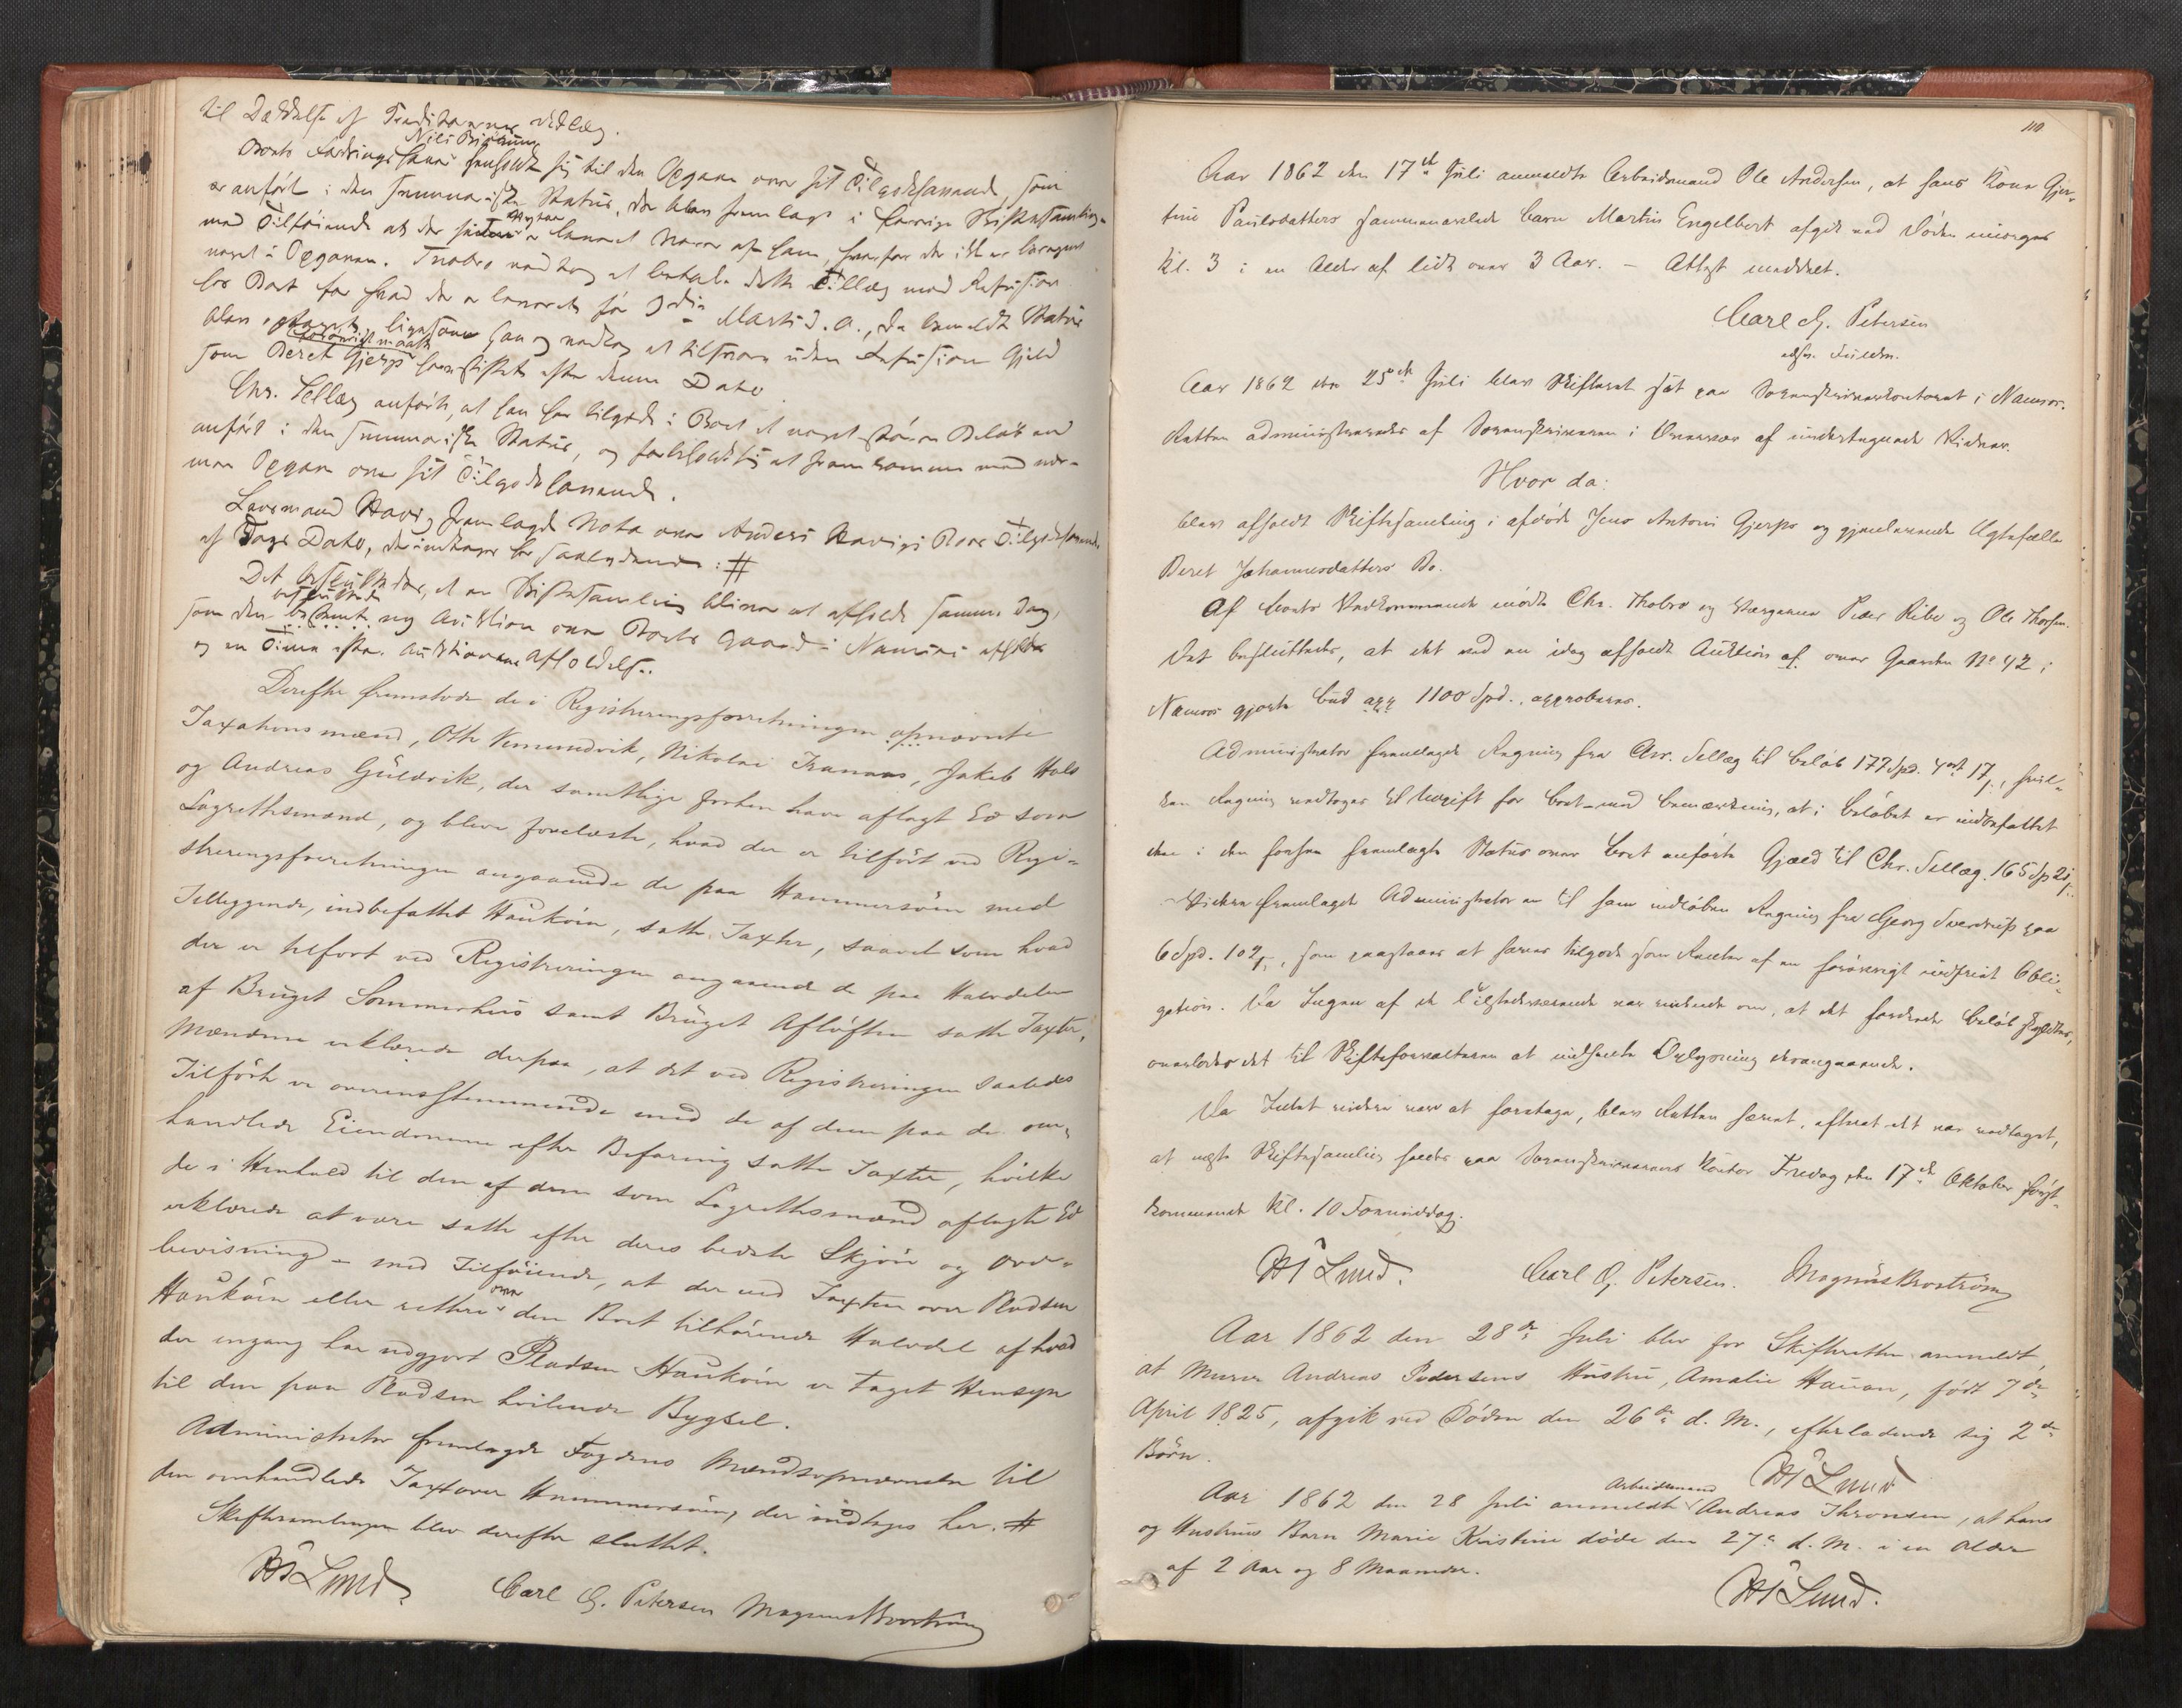 til Dækkelse af Creditorerne vedtog.
Niels Brixrum
Boets forhenholdt sig til den Opgave over sit Tilgodehavende, som
er anført i den summariske Status, der blev fremlagt i forrige Skiftesamling
med Tilføiende at der senere er leveret Varer af ham, hvorfor der ikke er beregnet
noget i Opgaven. Thobro vedtog at betale dette Tillæg mod Refusion
hos Boet for hvad der er leveret før 3die Marts d. A., da bemeldte Status
blev optaget, ligesom han og vedtog at tilsvare uden Refusion Gjeld
som Beret Gjerps har stiftet efter denne Dato
Chr. Sellæg anførte, at han har tilgode i Boet et noget større Beløb end
anført i den summariske Status, og forbeholdt sig at fremkomme med nær-
mere Opgave over sit Tilgodehavende.
Lensmand Havig fremlagde Nota over Anders Havigs Boes Tilgodehavende
af Dags Dato, der indtages her saalydende: #
Det besluttedes, at en Skiftesamling bliver at afholde samme Dag,
som den besluttede ny Auktion over Boets Gaard i Namsos afholdes
og en Time efter Auktionens Afholdelse.
Derefter fremstode de i Registreringsforretningen opnævnte
Taxationsmænd, Otte Vemundvik, Nikolai Tranaas, Jakob Hals
og Andreas Guldvik, der samtlige forhen have aflagt Ed som
Lagrettesmænd, og bleve forelæste, hvad der er tilført ved Regi-
streringsforretningen angaaende de paa Hammersøen med
Tilleggende, indbefattet Haukøen, satte Taxter, saavel som hvad
der er tilført ved Registreringen angaaende de paa Halvdelen
af Bruget Sommerhus samt Bruget Afløften satte Taxter,
Mændene erklærede derpaa, at det ved Registreringen saaledes
Tilførte er overensstemmende med de af dem paa de om-
handlede Eiendomme efter Befaring satte Taxter, hvilke
de i Henhold til den af dem som Lagrettesmænd aflagte Ed
erklærede at være satte efter deres bedste Skjøn og Over-
bevisning – med Tilføiende, at der ved Taxten over Pladsen
Haukøen eller rettere over den Boet tilhørende Halvdel af hvad
der engang har udgjort Pladsen Haukøen er taget Hensyn
til den paa Pladsen hvilende Bygsel.
Administrator fremlagde Fogdens Mændsopnævnelse til
den omhandlede Taxt over Hammersøen, der indtages her. #
Skiftesamlingen blev derefter sluttet.
HS Lund. Carl G. Petersen Magnus Broström
110.
Aar 1862 den 17de Juli anmeldte Arbeidsmand Ole Andersen, at hans Kone Gjer-
tine Paulsdatters sammenavlede Barn Martin Engelbert afgik ved Døden imorges
Kl. 3 i en Alder af lidt over 3 Aar. – Attest meddelt.
Carl G. Petersen
efter Fuldm.
Aar 1862 den 25de Juli blev Skifteret sat paa Sorenskriverkontoret i Namsos.
Retten administreredes af Sorenskriveren i Overvær af undertegnede Vidner.
Hvor da:
blev afholdt Skiftesamling i afdøde Jens Antoni Gjerps og gjenlevende Ægtefælle
Beret Johannesdatters Bo.
Af Boets Vedkommende mødte Chr. Thobro og Værgerne Peder Ribe og Ole Thorsen.
Det besluttedes, at det ved en idag afholdt Auktion af over Gaarden No 42 i
Namsos gjorte Bud app 1100 Spd., approberes.
Administrator fremlagde Regning fra Chr. Sellæg til Beløb 177 Spd. 4 ort 17 s, hvil-
ken Regning vedtoges til Udgift for Boet med Bemærkning, at i Beløbet er indbefattet
den i den forhen fremlagte Status over Boet anførte Gjæld til Chr. Sellæg. 165 Sp 21 s.
Videre fremlagde Administrator en til ham indløben Regning fra Georg Sverdrup paa
6 Spd. 102 s, som paastaaes at haves tilgode som Renter af en forøvrigt indfriet Obli-
gation. Da Ingen af de Tilstedeværende var vidende om, at det fordrede Beløb skyldtes,
overlodes det til Skifteforvalteren at indhente Oplysning derangaaende.
Da Intet videre var at foretage, blev Retten hævet, efterat det var vedtaget,
at næste Skiftesamling holdes paa Sorenskriverens Kontor Fredag den 17de Oktober først-
kommende Kl. 10 Formiddag.
HS Lund. Carl G. Petersen. Magnus Broström
Aar 1862 den 28de Juli blev for Skifteretten anmeldt,
at Murer Andreas Pedersens Hustru, Amalie Hauan, født 7de
April 1825, afgik ved Døden den 26de d. M., efterladende sig 2de
Børn.
HS Lund
Aar 1862 den 28 Juli anmeldte Arbeidsmand Andreas Thronsen, at hans
og Hustrues Barn Marie Kristine døde den 27de d. M. i en Alder
af 2 Aar og 8 Maaneder.
HS Lund.